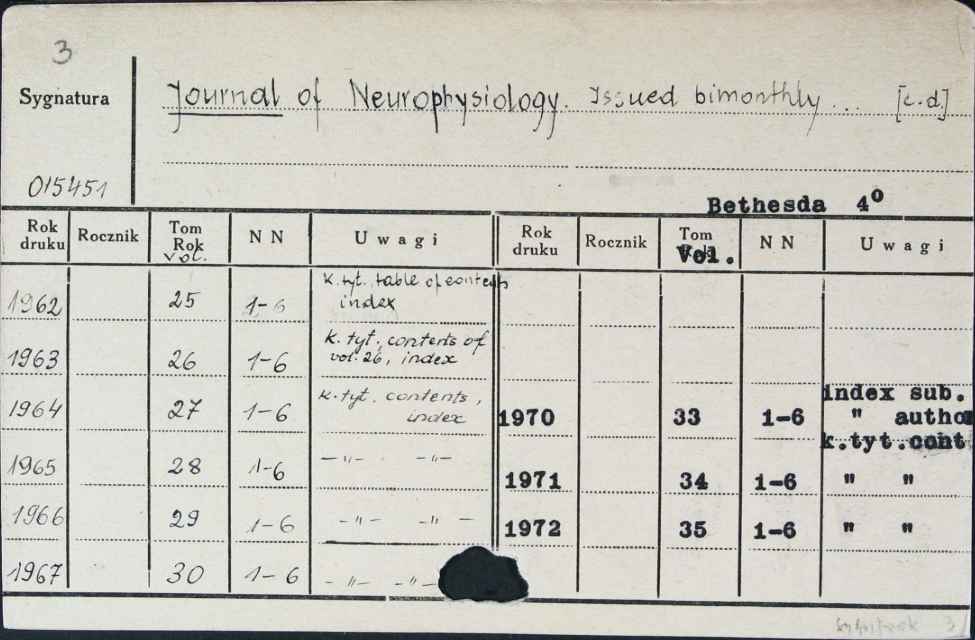 3
Sygnatura
Journal of Neurophysiology. Issued bimonthly... [c.d.]
015451
Bethesda 4⁰
Rok druku Rocznik Tom Rok Vol. N N Uwagi Rok druku Rocznik Tom Vol. N N Uwagi
1962 25 1-6 k. tyt. table of contents index
1963 26 1-6 k. tyt. contents of vol. 26, index
1964 27 1-6 k. tyt. contents, index
1965 28 1-6 -"- -"-
1966 29 1-6 -"- -"-
1967 30 1-6 -"- -"-
1970 33 1-6 index sub. " autho k.tyt.cont
1971 34 1-6 " "
1972 35 1-6 " "
3